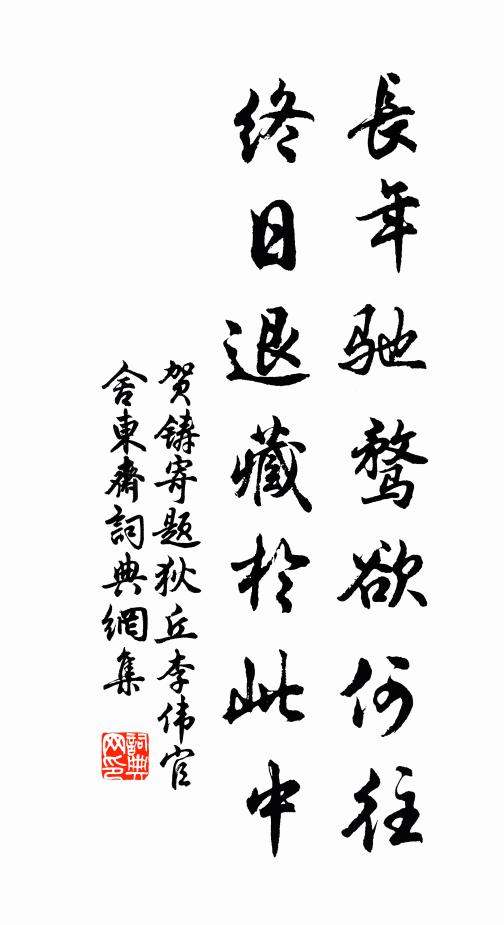 長年馳騖欲何往
終日退藏於此中
贺鑄寄题狄丘李伟官
舍東齋詞典網集
詞典
网印